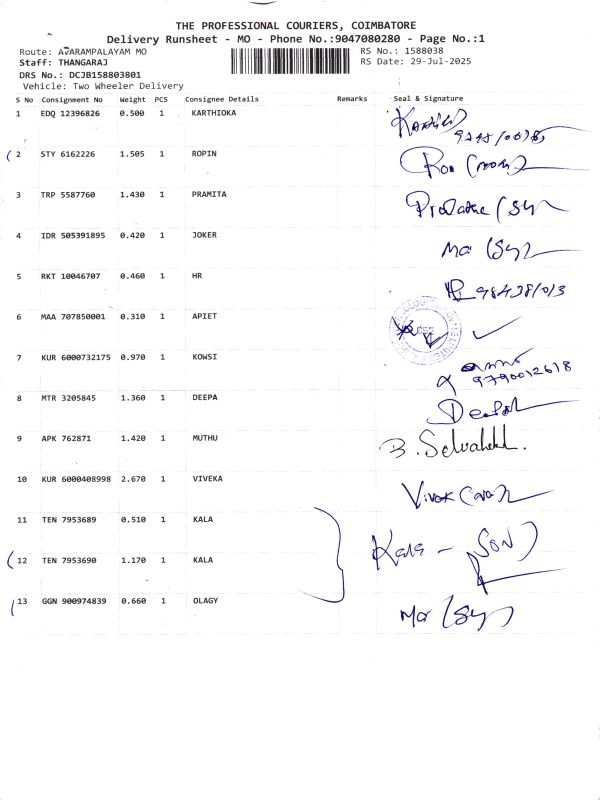 THE PROFESSIONAL COURIERS, COIMBATORE
Delivery Runsheet - MO - Phone No.:9047080280 - Page No.:1
Route: AVARAMPALAYAM MO
RS No.: 1588038
Staff: THANGARAJ
RS Date: 29-Jul-2025
DRS No.: DCJB158803801
Vehicle: Two Wheeler Delivery
S No Consignment No Weight PCS Consignee Details Remarks Seal & Signature
1 EDQ 12396826 0.500 1 KARTHIOKA
2 STY 6162226 1.505 1 ROPIN
3 TRP 5587760 1.430 1 PRAMITA
4 IDR 505391895 0.420 1 JOKER
5 RKT 10046707 0.460 1 HR
6 MAA 707850001 0.310 1 APIET
7 KUR 6000732175 0.970 1 KOWSI
9790012618
8 MTR 3205845 1.360 1 DEEPA
9 APK 762871 1.420 1 MUTHU
10 KUR 6000408998 2.670 1 VIVEKA
11 TEN 7953689 0.510 1 KALA
Kala - SON)
12 TEN 7953690 1.170 1 KALA
13 GGN 900974839 0.660 1 OLAGY